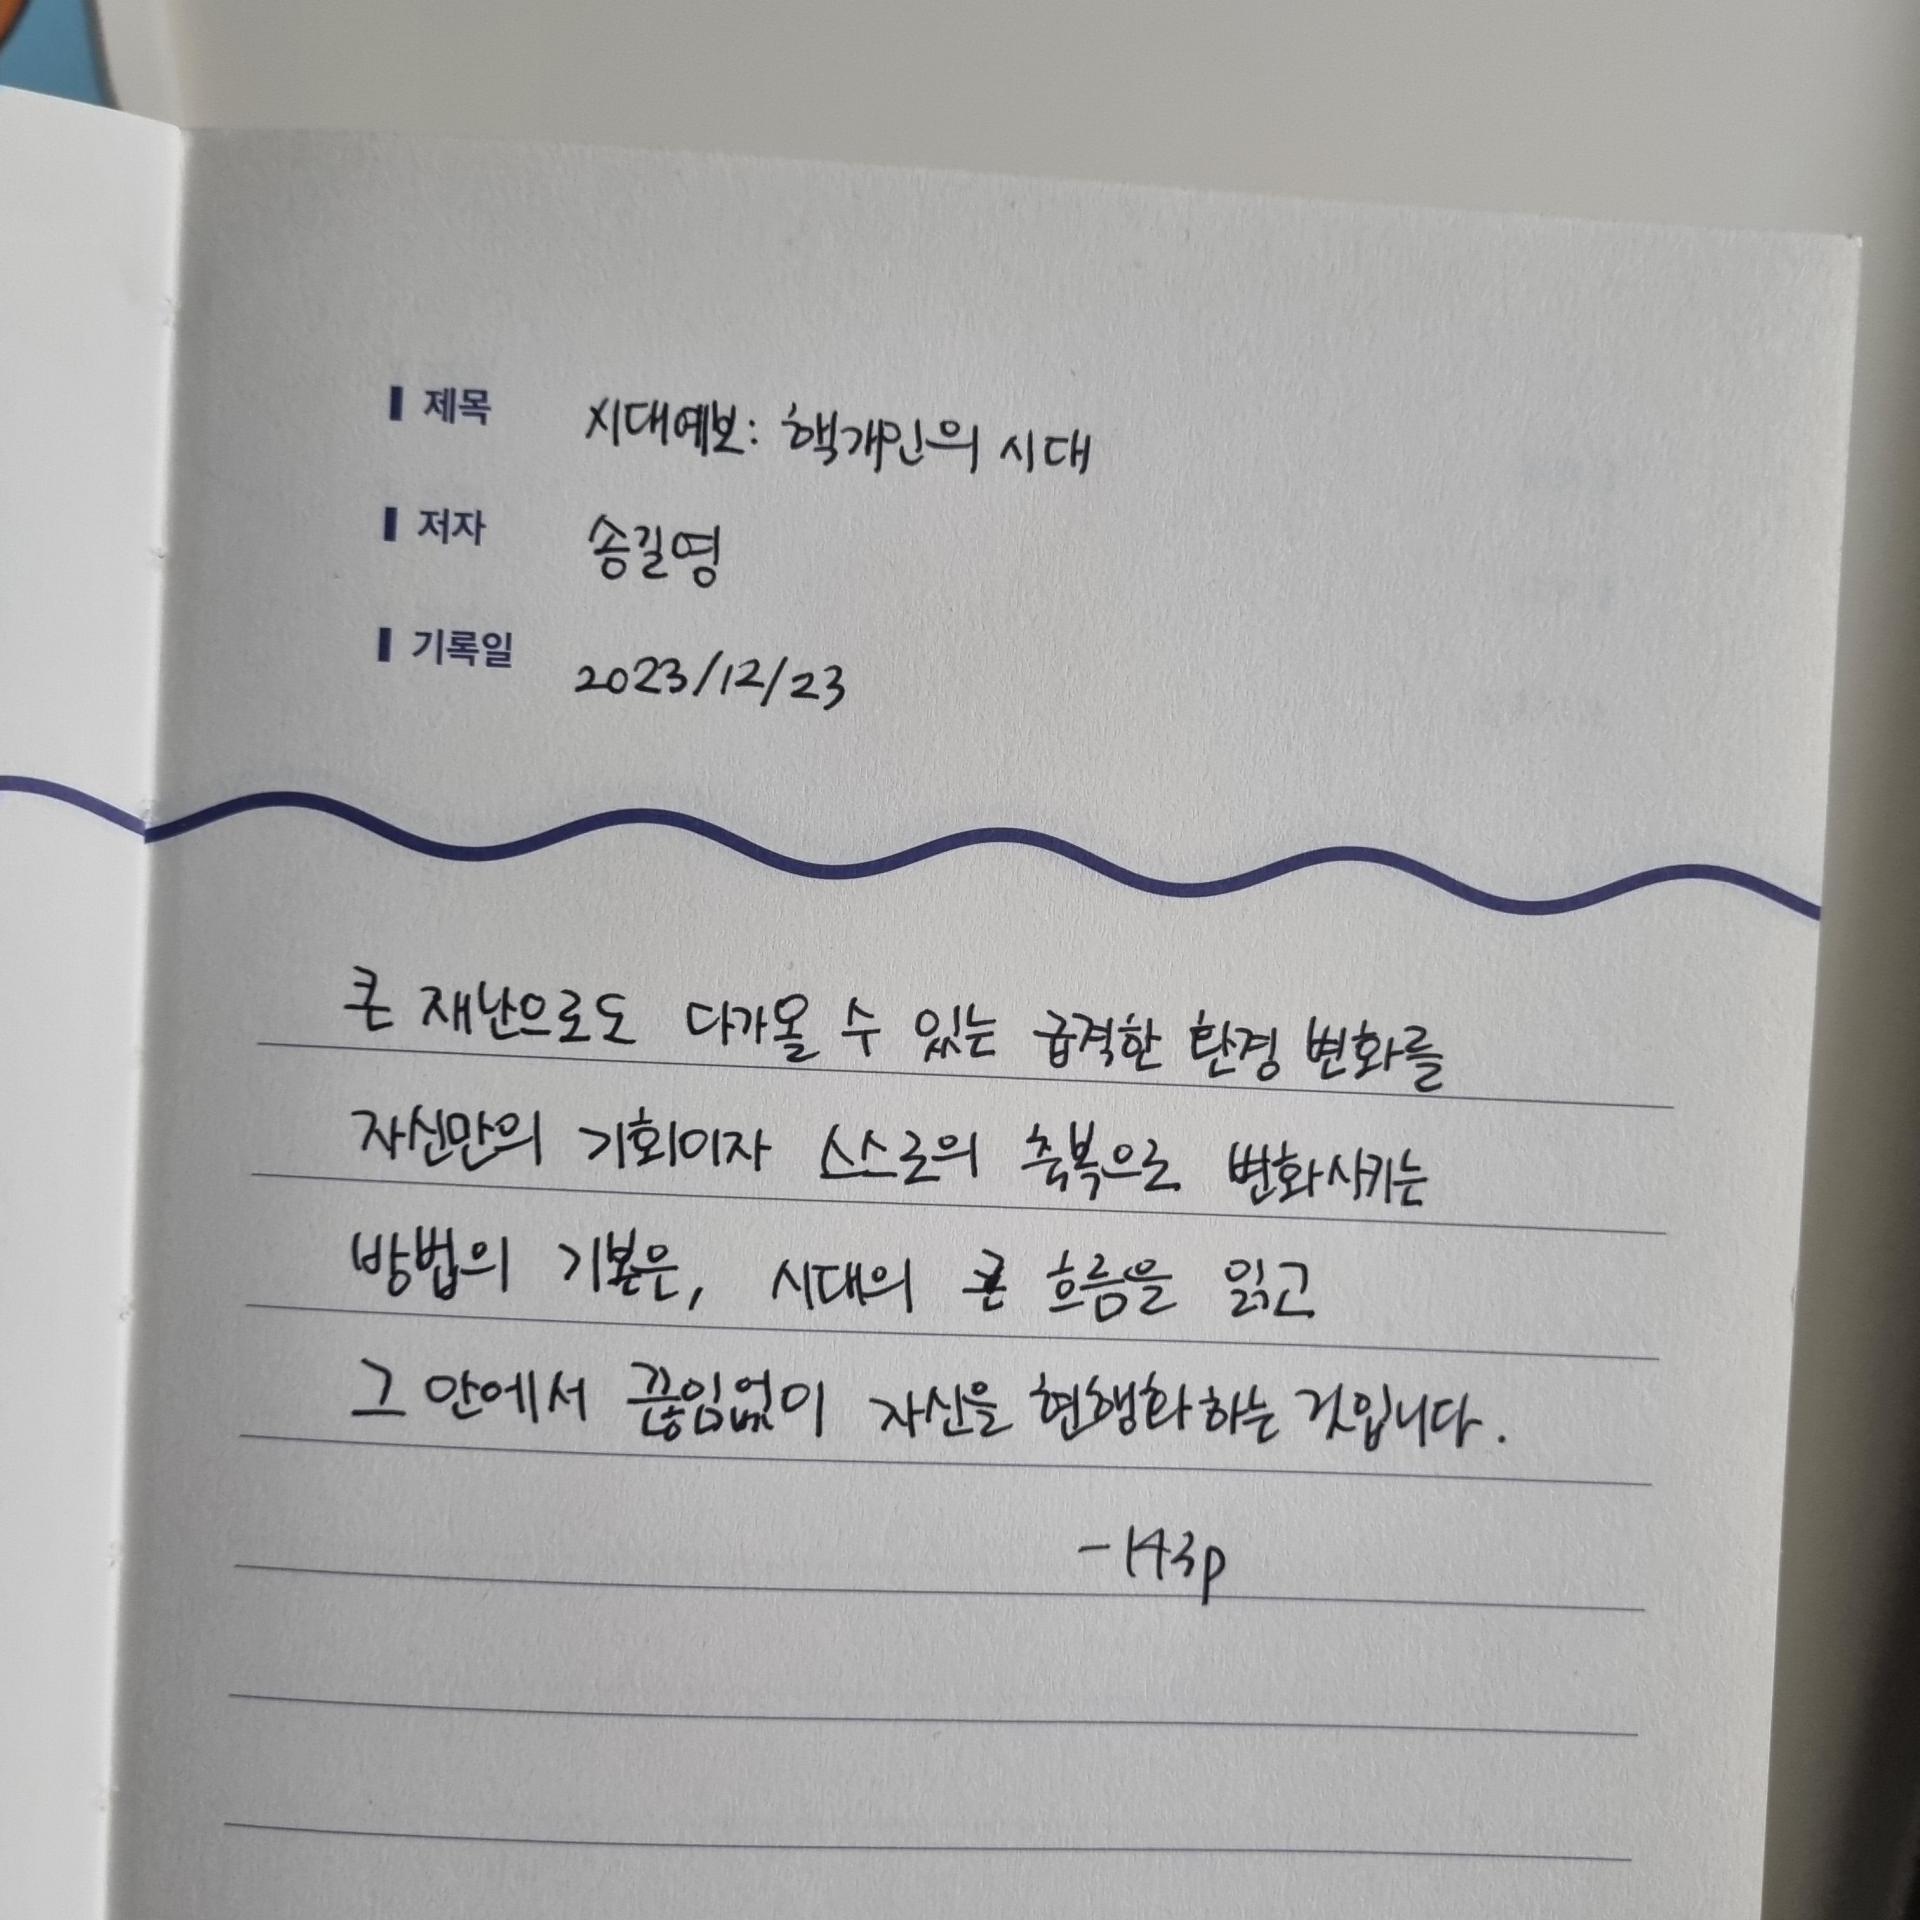 제목 시대예보: 핵개인의 시대
저자 송길영
기록일 2023/12/23
큰 재난으로도 다가올 수 있는 급격한 환경 변화를
자신만의 기회이자 스스로의 축복으로 변화시키는
방법의 기본은, 시대의 큰 흐름을 읽고
그 안에서 끊임없이 자신을 현행화하는 것입니다.
-143p